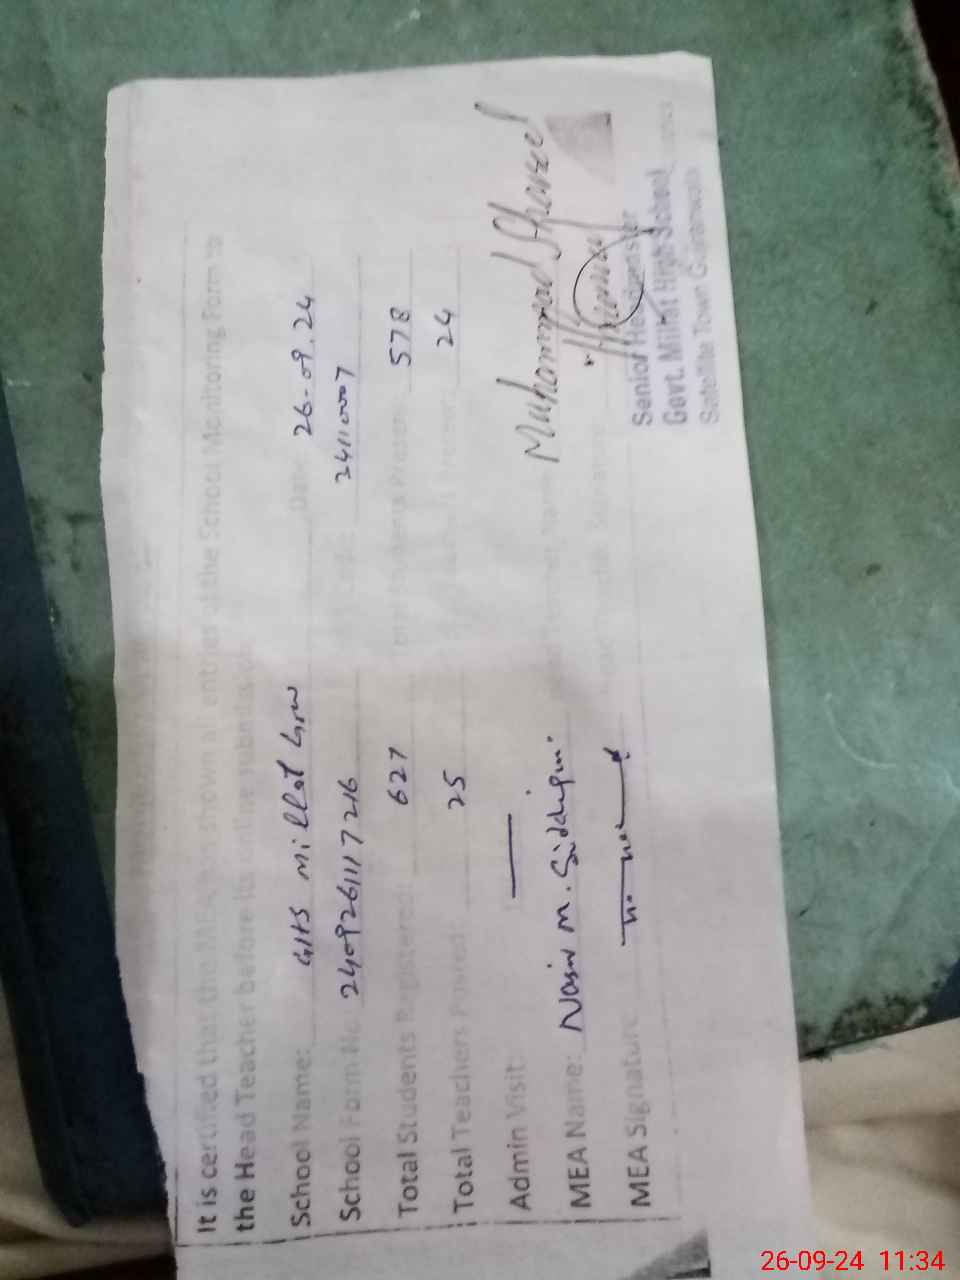 It is certified that the MEA has shown all entries of the School Monitoring Form to
the Head Teacher before its online submission
School Name: GHS Millat Grw Date: 26-09.24
School Form No: 2409261117216 24110007
Total Students Registered: 627 Total Students Present: 578
Total Teachers Posted: 25 Total Teachers Present: 24
Admin Visit: —
MEA Name: Nasir M. Siddiqui. Head Teacher Name Muhammad Shareef
MEA Signature: Head Teacher Signature
Senior Headmaster
Govt. Millat High School
Satellite Town Gujranwala
26-09-24 11:34